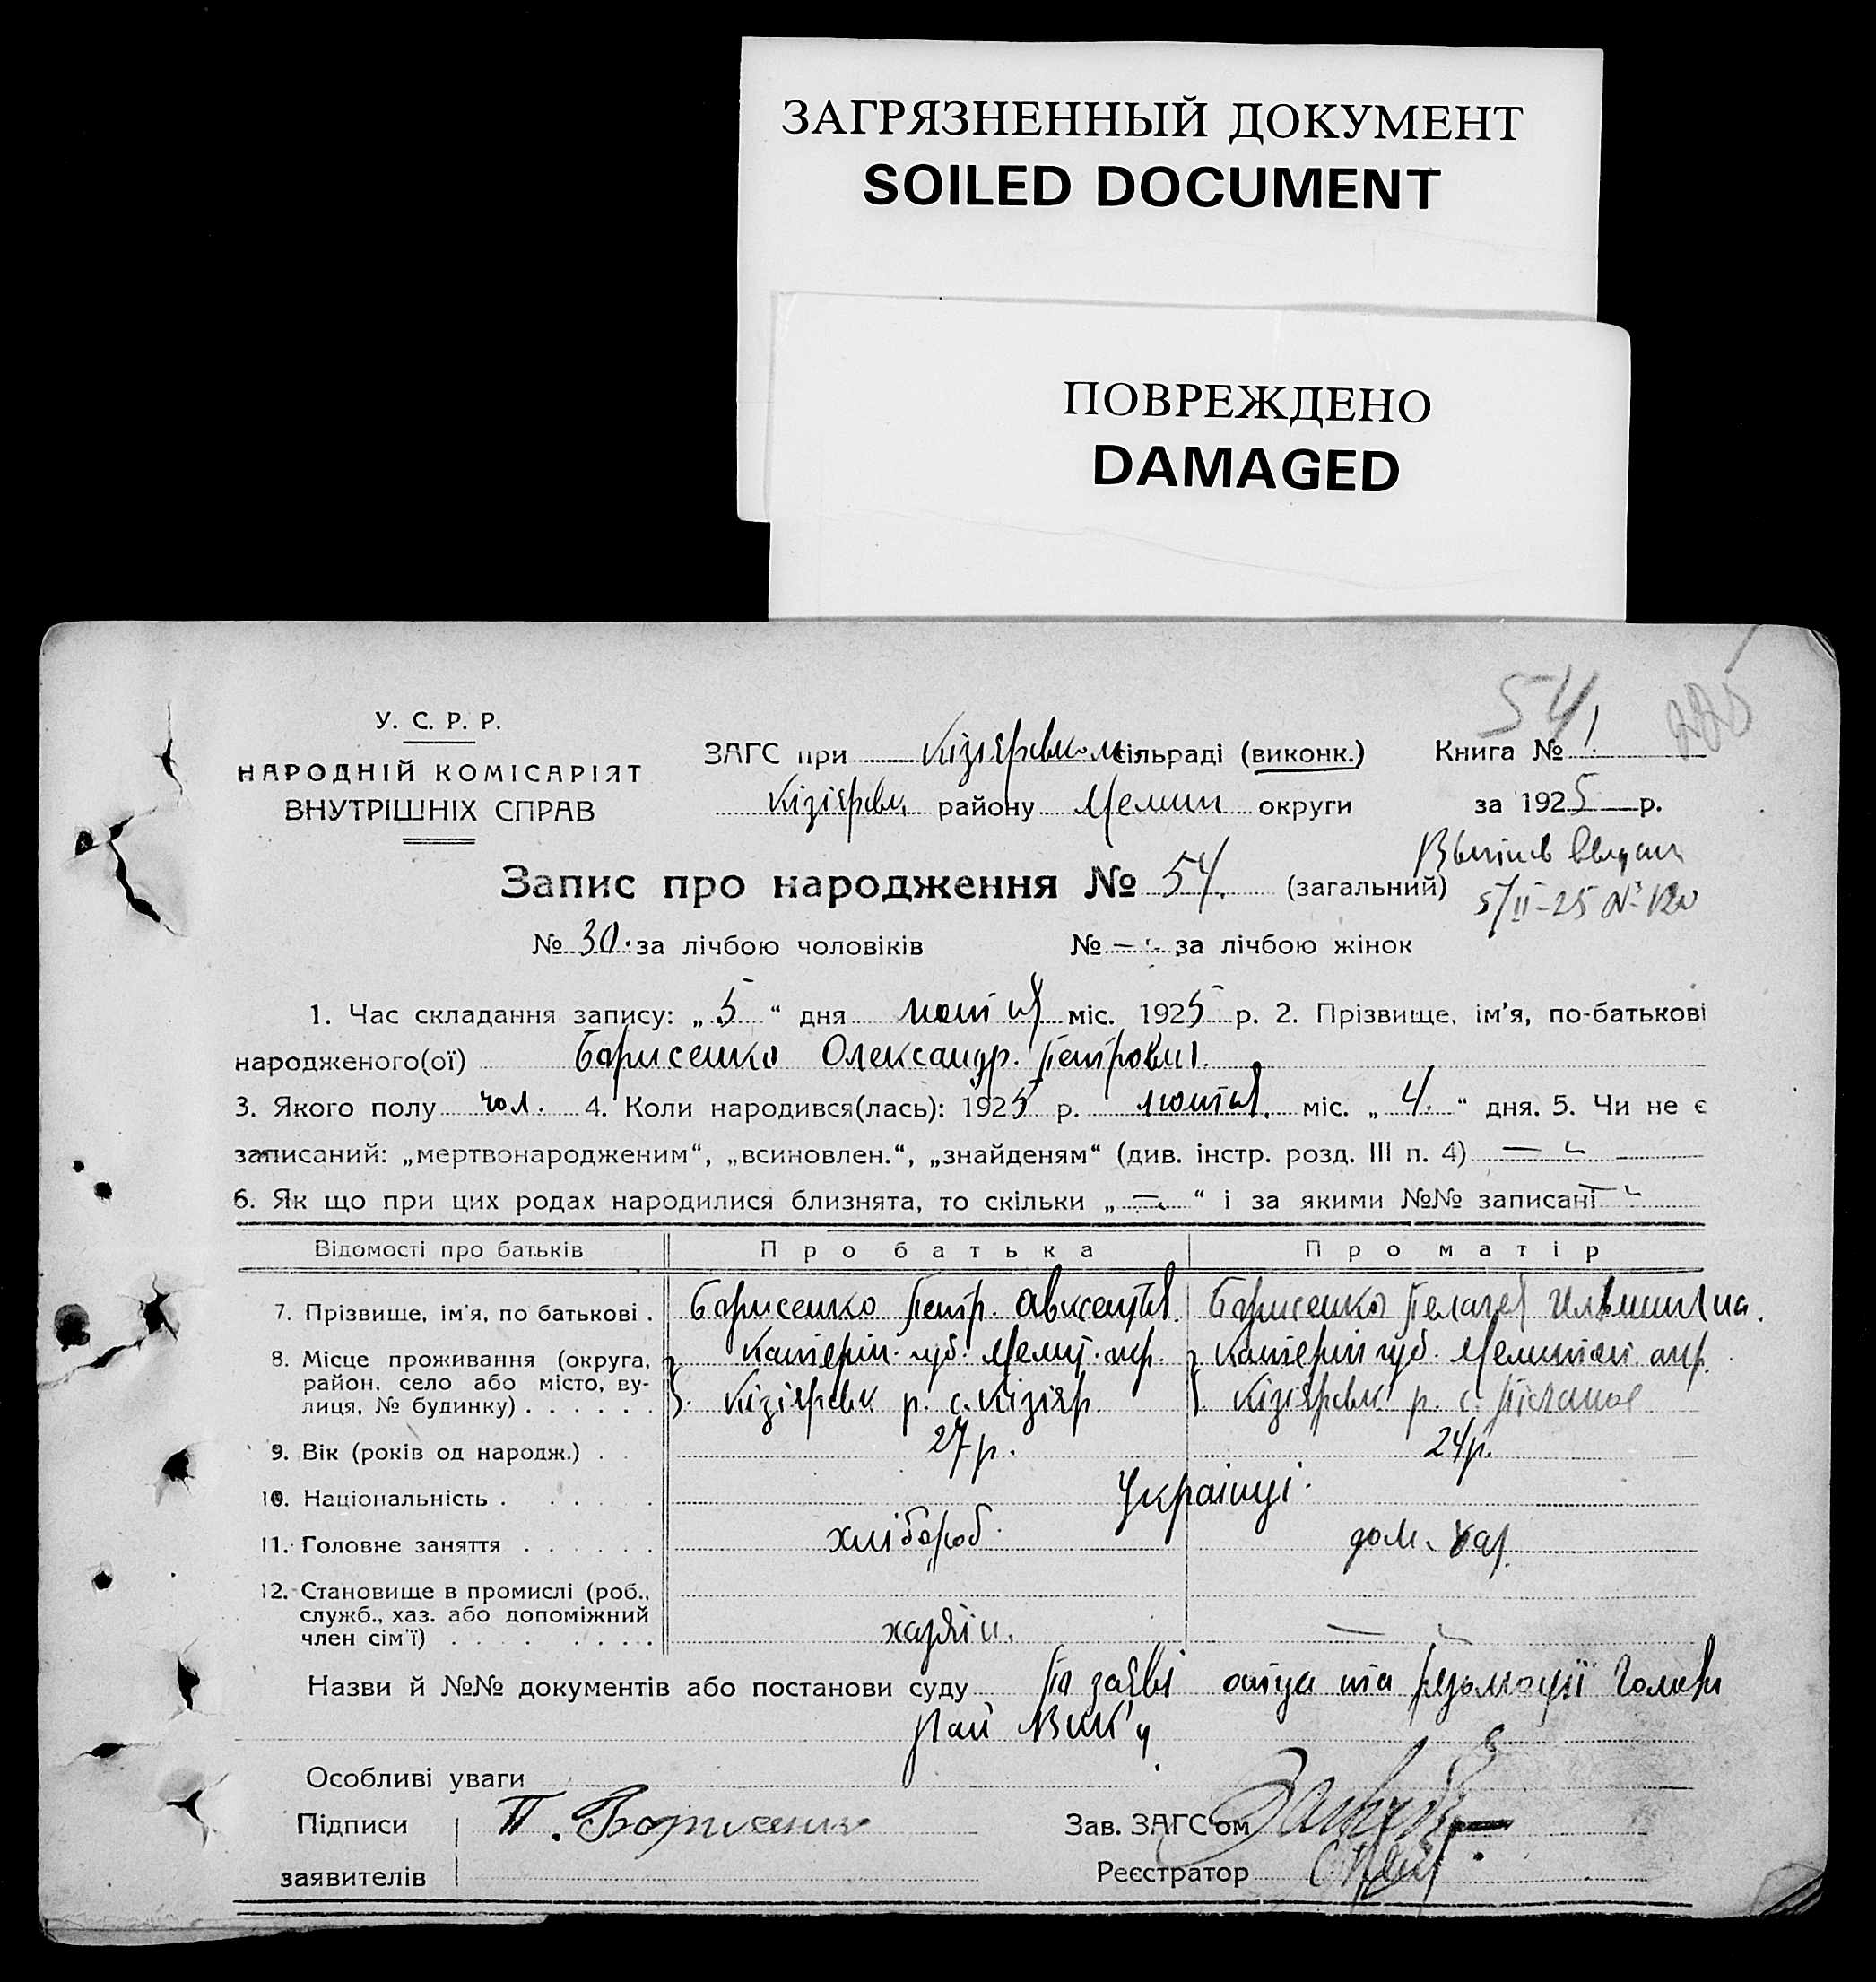 ЗАГРЯЗНЕННЫЙ ДОКУМЕНТ
SOILED DOCUMENT
ПОВРЕЖДЕНО
DAMAGED
54
У. С. Р. Р.
НАРОДНІЙ КОМІСАРІЯТ
ВНУТРІШНІХ СПРАВ
ЗАГС при Кізіярськом сільраді (виконк.) Книга № 1
Кізіярськ району Мелит округи за 1925 р.
5/II-25 №
Запис про народження № 54. (загальний)
№ 30. за лічбою чоловіків № — за лічбою жінок
1. Час складання запису: „ 5 “ дня лютня міс. 1925 р. 2. Прізвище, ім'я, по-батькові
народженого(ої) Борисенко Олександр. Петрович.
3. Якого полу чол. 4. Коли народився(лась): 1925 р. лютня. міс. „ 4. “ дня. 5. Чи не є
записаний: „мертвонародженим“, „всиновлен.“, „знайденям“ (див. інстр. розд. III п. 4) —
6. Як що при цих родах народилися близнята, то скільки „ — “ і за якими №№ записані —
Відомості про батьків Про батька Про матір
7. Прізвище, ім'я, по батькові . Борисенко Петр. Авксентів. Борисенко Пелагея
8. Місце проживання (округа, район, село або місто, вулиця, № будинку) . . . . . . Катерин. губ. Мелит. окр. Катерин губ. Мелитоп. окр.
Кізіярськ р. с. Кізіяр. Кізіярськ р. с.
9. Вік (років од народж.) . . 27 р. 24 р.
10. Національність . . . . . Українці.
11. Головне заняття . . . . . . хлібороб. дом. хаз.
12. Становище в промислі (роб., служб., хаз. або допоміжний член сім'ї) . . . . . . . . хазяін. —
Назви й №№ документів або постанови суду По заяві отца та резолюції Голови
Рай ВКК'у
Особливі уваги
Підписи П. Борисенко Зав. ЗАГС'ом
заявителів Реєстратор